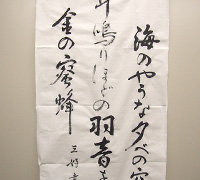 海のやうな夕べの空
耳鳴りほどの羽音を
金の蜜蜂
三好